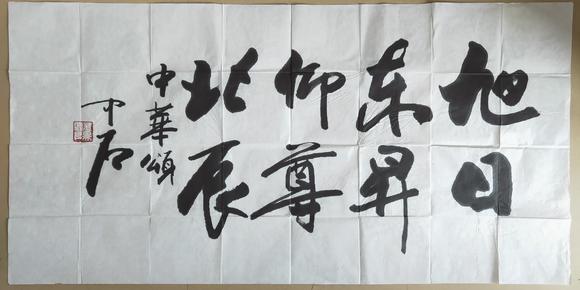 旭日
东昇
仰尊
北辰
中華頌
中石